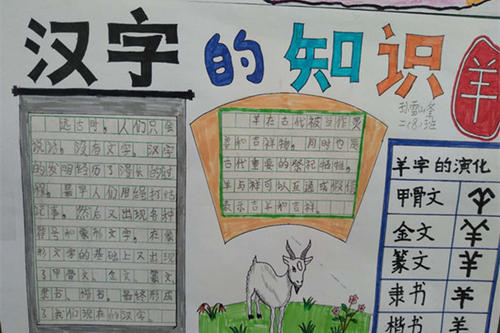 汉字的知识
羊
二(8)班
远古时，人们只会
说话，没有文字。汉字
的发明经历了漫长的过
程。最早人们用绳打结
记事。然后又出现各种
符号和象形文字。在象
形文字的基础上又出现
了甲骨文、金文、篆文
隶书、楷书。最终形成
了我们现在的汉字。
羊在古代被当作灵
兽和吉祥物。同时也是
古代重要的祭祀牺牲。
羊与祥可以互通或假借
表示吉羊即吉祥。
羊字的演化
甲骨文
金文
篆文
隶书 羊
楷书 羊